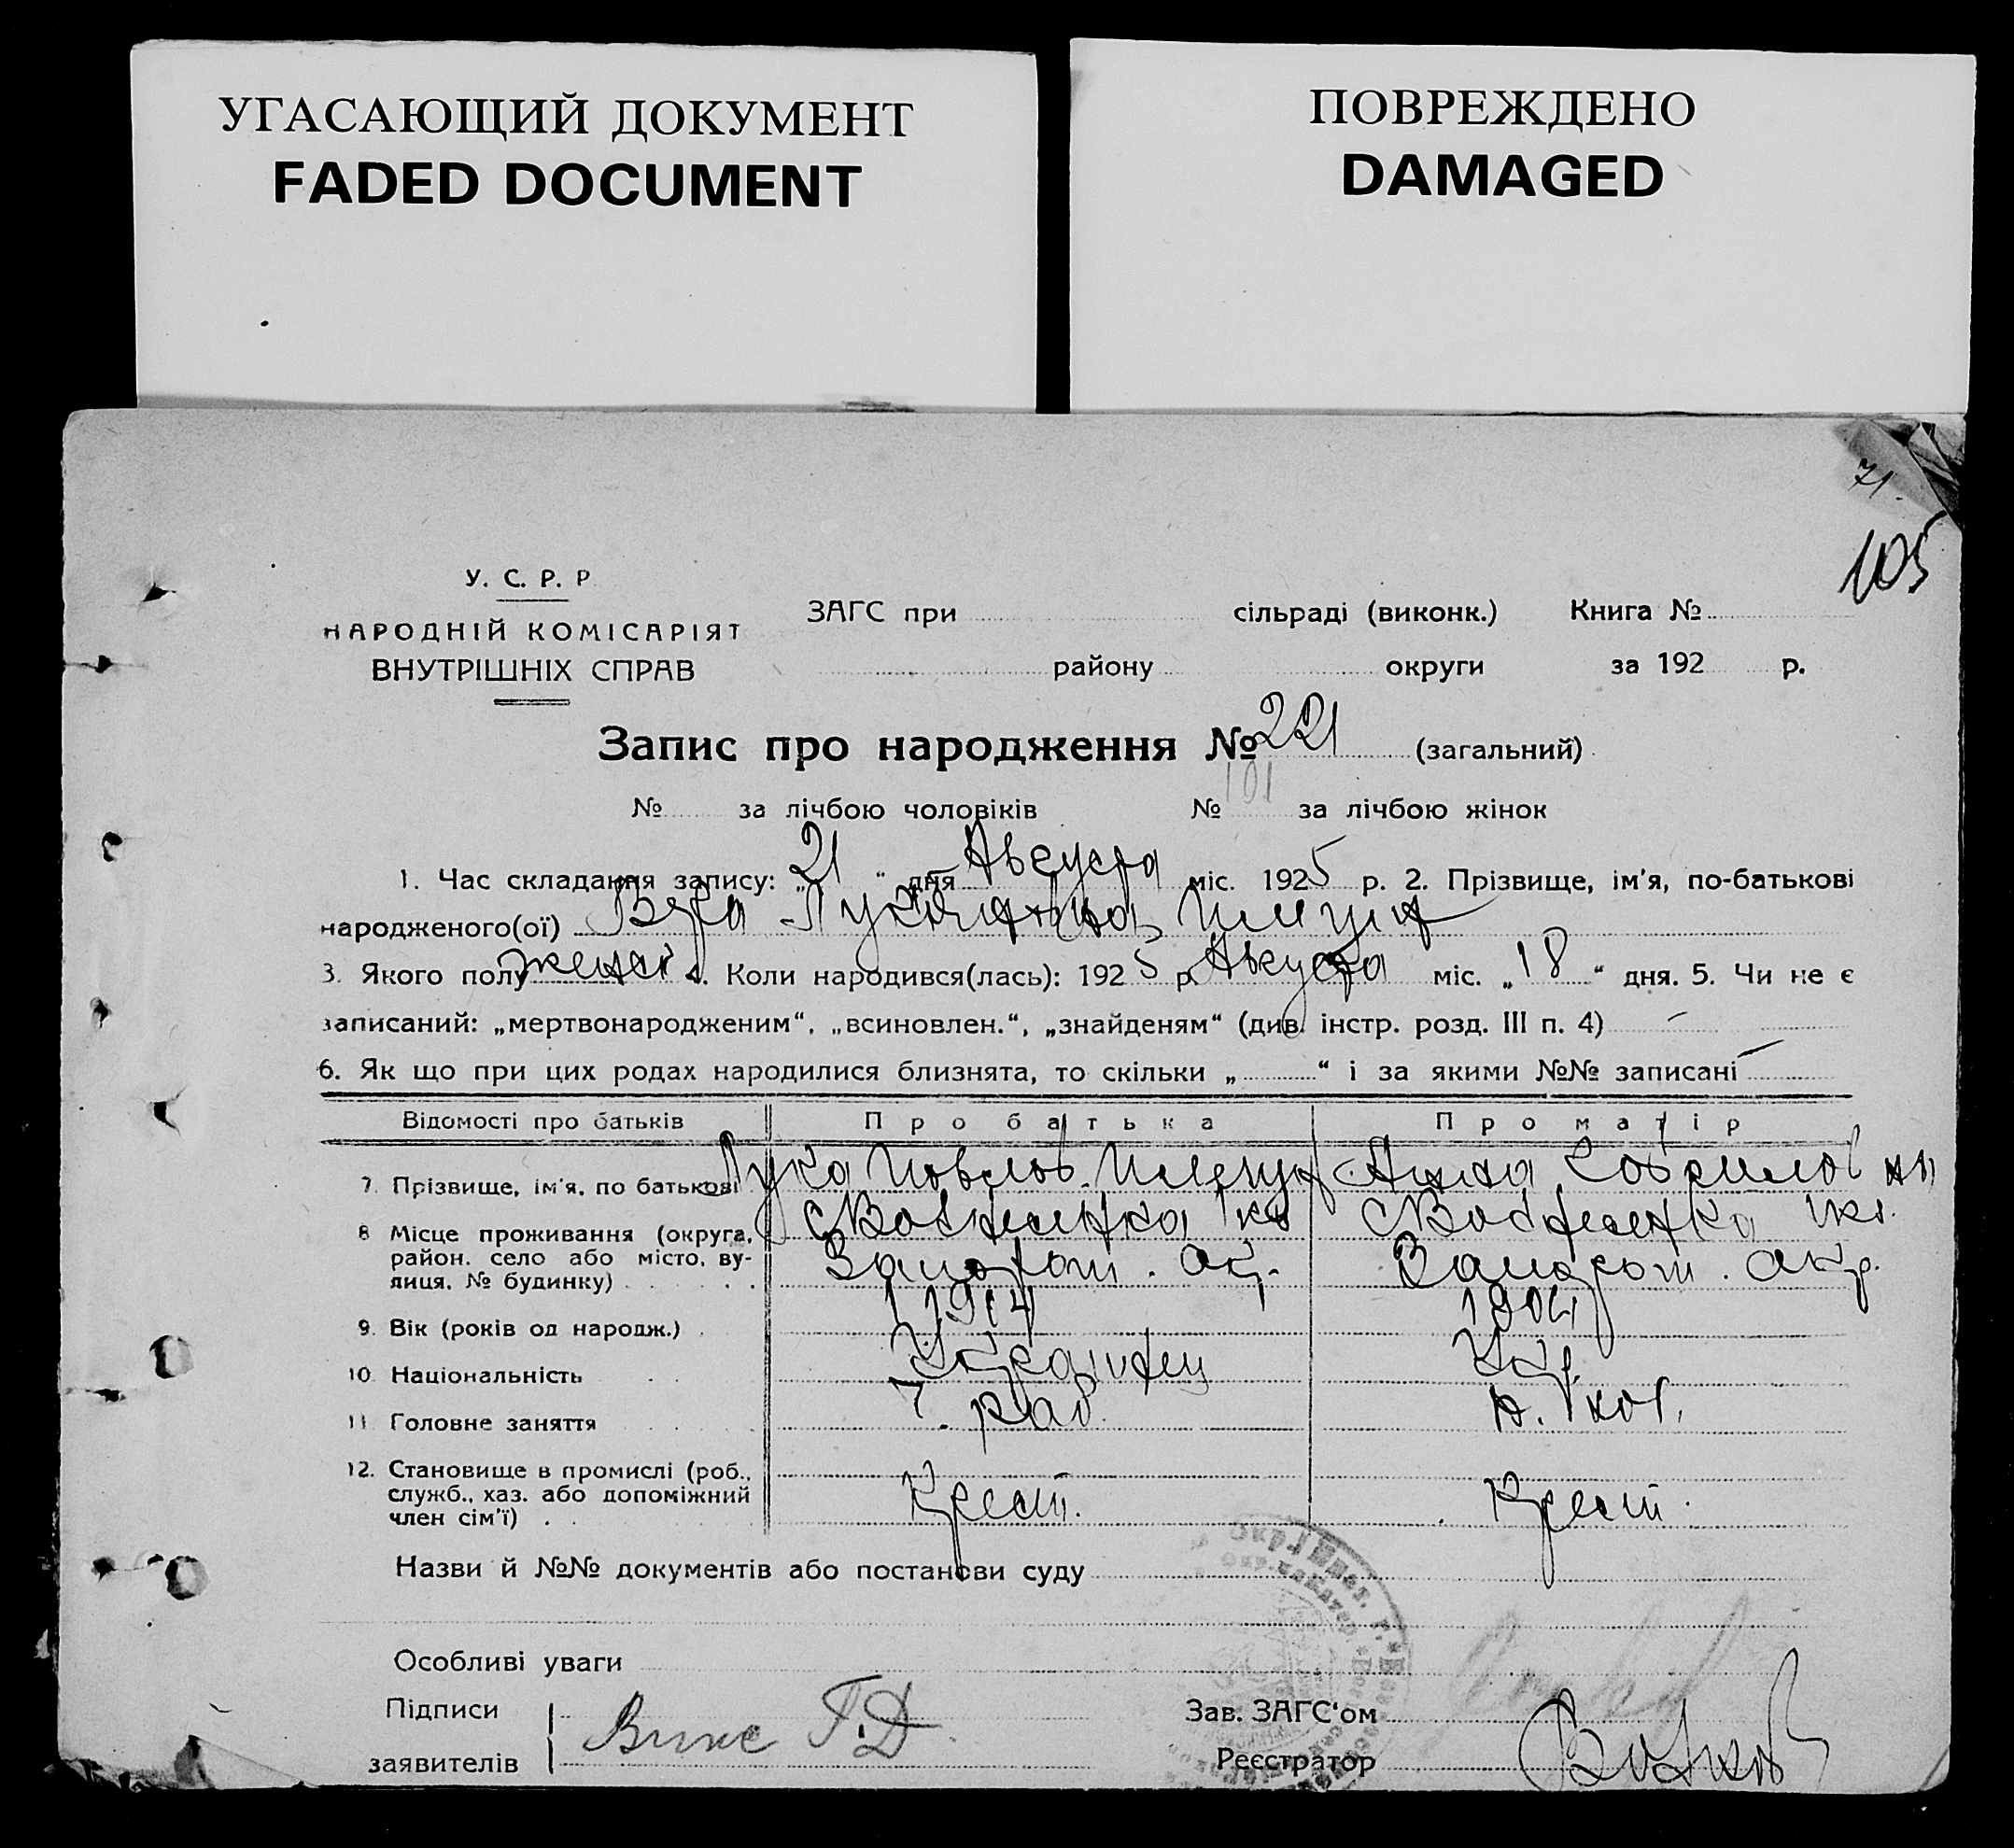 УГАСАЮЩИЙ ДОКУМЕНТ
FADED DOCUMENT
ПОВРЕЖДЕНО
DAMAGED
71.
105
У. С. Р. Р
НАРОДНІЙ КОМІСАРІЯТ
ВНУТРІШНІХ СПРАВ
ЗАГС при сільраді (виконк.) Книга №
району округи за 192 р.
Запис про народження № 221 (загальний)
№ за лічбою чоловіків № 101 за лічбою жінок
1. Час складання запису: „21“ дня Августа міс. 1925 р. 2. Прізвище, ім'я, по-батькові
народженого(ої) Вера
3. Якого полу женск 4. Коли народився(лась): 1925 р. Августа міс. „18“ дня. 5. Чи не є
записаний: „мертвонародженим“, „всиновлен.“, „знайденям“ (див. інстр. розд. III п. 4) –
6. Як що при цих родах народилися близнята, то скільки „ “ і за якими №№ записані –
Відомості про батьків Про батька Про матір
7. Прізвище, ім'я, по батькові Лука Анна
8 Місце проживання (округа,
район, село або місто, ву-
лиця, № будинку) Запорож. Окр. Запорож. Окр.
9. Вік (років од народж.) 1904
10. Національність Украинец Укр.
11 Головне заняття Ч. раб.
12. Становище в промислі (роб.,
служб., хаз. або допоміжний
член сім'ї) Крест. Крест.
Назви й №№ документів або постанови суду
Особливі уваги
Підписи
заявителів Винс Г.Д.
Зав. ЗАГС'ом
Реєстратор